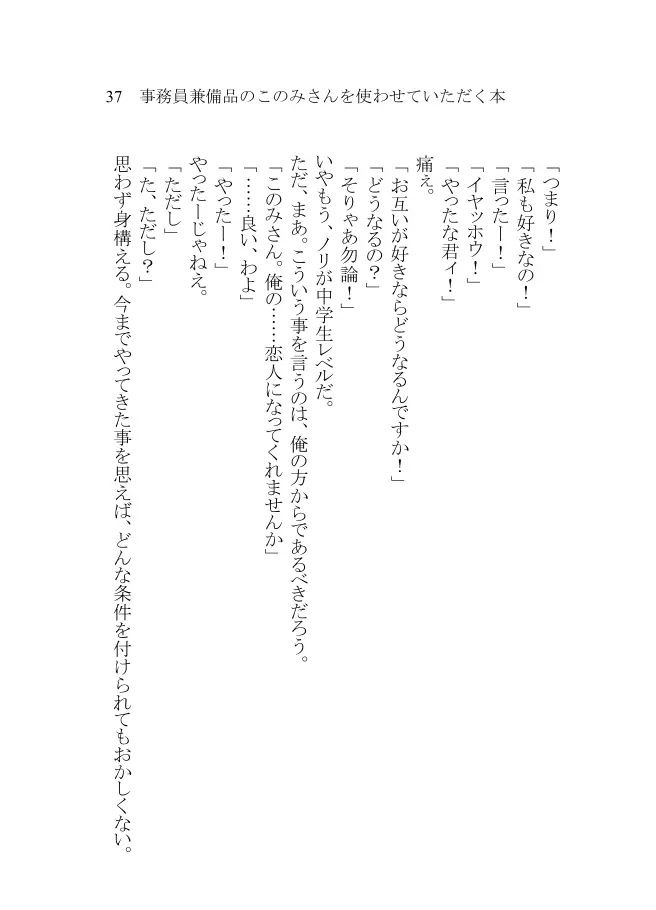 37 事務員兼備品のこのみさんを使わせていただく本
「つまり！」
「私も好きなの！」
「言ったー！」
「イヤッホウ！」
「やったな君ィ！」
痛ぇ。
「お互いが好きならどうなるんですか！」
「どうなるの？」
「そりゃあ勿論！」
いやもう、ノリが中学生レベルだ。
ただ、まあ。こういう事を言うのは、俺の方からであるべきだろう。
「このみさん。俺の……恋人になってくれませんか」
「……良い、わよ」
「やったー！」
やったーじゃねえ。
「ただし」
「た、ただし？」
思わず身構える。今までやってきた事を思えば、どんな条件を付けられてもおかしくない。